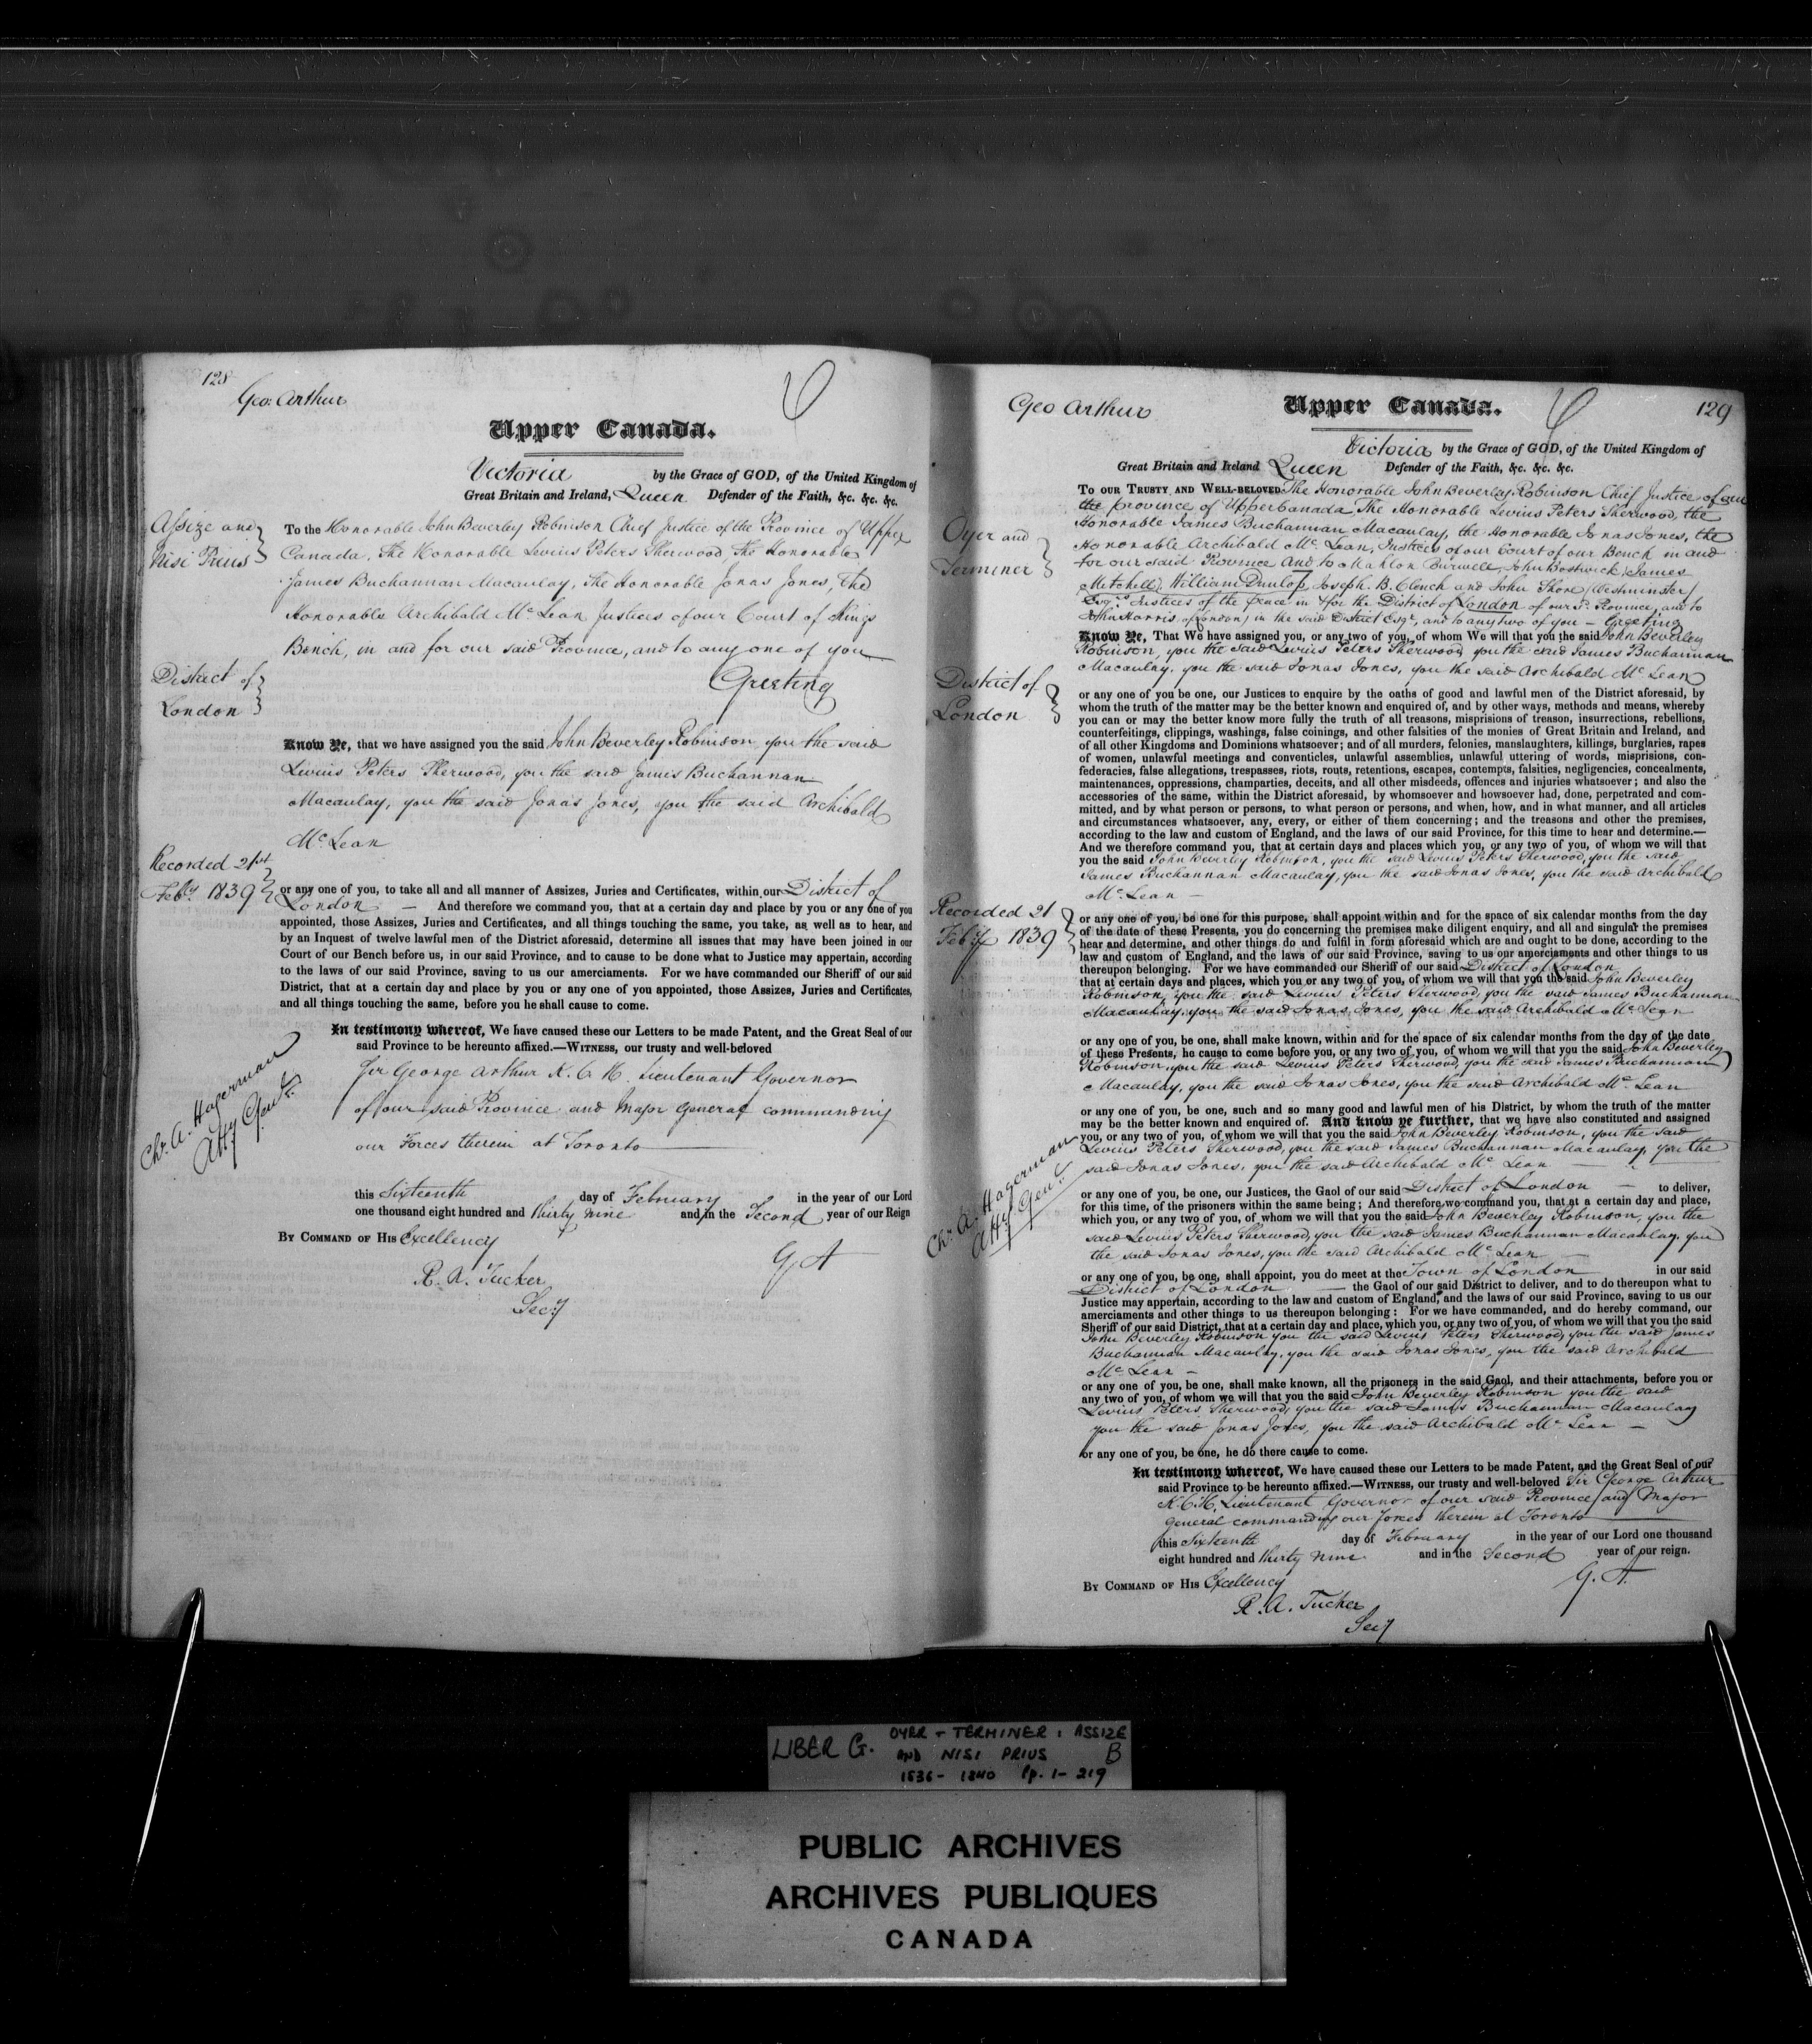 128
Geo: Arthur
Upper Canada.
Victoria by the Grace of GOD, of the United Kingdom of
Great Britain and Ireland, Queen Defender of the Faith, &c. &c. &c.
Assize and
Nisi Prius
To the Honorable John Beverley Robinson Chief Justice of the Province of Upper
Canada, The Honorable Levius Peters Sherwood, the Honorable
James Buchannan Macaulay, The Honorable Jonas Jones, The
Honorable Archibald Mc Lean Justices of our Court of Kings
Bench, in and for our said Province, and to any one of you
District of
London
Greeting
Know Ye, that we have assigned you the said John Beverley Robinson, you the said
Levius Peters Sherwood, you the said James Buchannan
Macaulay, you the said Jonas Jones, you the said Archibald
Mc Lean
Recorded 21st
Feby 1839
or any one of you, to take all and all manner of Assizes, Juries and Certificates, within our District of
London — And therefore we command you, that at a certain day and place by you or any one of you
appointed, those Assizes, Juries and Certificates, and all things touching the same, you take, as well as to hear, and
by an Inquest of twelve lawful men of the District aforesaid, determine all issues that may have been joined in our
Court of our Bench before us, in our said Province, and to cause to be done what to Justice may appertain, according
to the laws of our said Province, saving to us our amerciaments. For we have commanded our Sheriff of our said
District, that at a certain day and place by you or any one of you appointed, those Assizes, Juries and Certificates,
and all things touching the same, before you he shall cause to come.
In testimony whereof, We have caused these our Letters to be made Patent, and the Great Seal of our
said Province to be hereunto affixed.—WITNESS, our trusty and well-beloved
Sir George Arthur K. C. H. Lieutenant Governor
of our said Province and Major General commanding
our Forces therein at Toronto
Chr. A. Hagerman
Atty Genl.
this Sixteenth day of February in the year of our Lord
one thousand eight hundred and thirty nine and in the Second year of our Reign
BY COMMAND OF HIS Excellency
G A
R. A. Tucker
Secy
129
Geo Arthur
Upper Canada.
Victoria by the Grace of GOD, of the United Kingdom of
Great Britain and Ireland Queen Defender of the Faith, &c. &c. &c.
TO OUR TRUSTY AND WELL-BELOVED The Honorable John Beverley Robinson Chief Justice of our
the province of Upper Canada, The Honorable Levius Peters Sherwood, the
Honorable James Buchannan Macaulay, the Honorable Jonas Jones, the
Honorable Archibald Mc. Lean, Justices of our Court of our Bench in and
for our said Province And to Mahlon Burwell, John Bostwick, James
Mitchell, William Dunlop, Joseph. B. Clench and John Shore (Westminster)
Esqrs. Justices of the peace in & for the District of London of our sd. Province, and to
John Harris, (of London) in the said District Esqr, and to any two of you — Greeting
Oyer and
Terminer
Know Ye, That We have assigned you, or any two of you, of whom We will that you the said John Beverley
Robinson, you the said Levius Peters Sherwood, you the said James Buchannan
Macaulay, you the said Jonas Jones, you the said Archibald Mc Lean
District of
London
or any one of you be one, our Justices to enquire by the oaths of good and lawful men of the District aforesaid, by
whom the truth of the matter may be the better known and enquired of, and by other ways, methods and means, whereby
you can or may the better know more fully the truth of all treasons, misprisions of treason, insurrections, rebellions,
counterfeitings, clippings, washings, false coinings, and other falsities of the monies of Great Britain and Ireland, and
of all other Kingdoms and Dominions whatsoever; and of all murders, felonies, manslaughters, killings, burglaries, rapes
of women, unlawful meetings and conventicles, unlawful assemblies, unlawful uttering of words, misprisions, con-
federacies, false allegations, trespasses, riots, routs, retentions, escapes, contempts, falsities, negligencies, concealments,
maintenances, oppressions, champarties, deceits, and all other misdeeds, offences and injuries whatsoever; and also the
accessories of the same, within the District aforesaid, by whomsoever and howsoever had, done, perpetrated and com-
mitted, and by what person or persons, to what person or persons, and when, how, and in what manner, and all articles
and circumstances whatsoever, any, every, or either of them concerning; and the treasons and other the premises,
according to the law and custom of England, and the laws of our said Province, for this time to hear and determine.—
And we therefore command you, that at certain days and places which you, or any two of you, of whom we will that
you the said John Beverley Robinson, you the said Levius Peters Sherwood, you the said
James Buchannan Macaulay, you the said Jonas Jones, you the said Archibald
Mc. Lean —
Recorded 21
Feby 1839
or any one of you, be one for this purpose, shall appoint within and for the space of six calendar months from the day
of the date of these Presents, you do concerning the premises make diligent enquiry, and all and singular the premises
hear and determine, and other things do and fulfil in form aforesaid which are and ought to be done, according to the
law and custom of England, and the laws of our said Province, saving to us our amerciaments and other things to us
thereupon belonging. For we have commanded our Sheriff of our said District of London
that at certain days and places, which you or any two of you, of whom we will that you the said John Beverley
Robinson, you the said Levius Peters Sherwood, you the said James Buchannan
Macaulay, you the said Jonas Jones, you the said Archibald Mc Lean
or any one of you, be one, shall make known, within and for the space of six calendar months from the day of the date
of these Presents, he cause to come before you, or any two of you, of whom we will that you the said John Beverley
Robinson, you the said Levius Peters Sherwood, you the said James Buchannan
Macaulay, you the said Jonas Jones, you the said Archibald Mc Lean
or any one of you, be one, such and so many good and lawful men of his District, by whom the truth of the matter
may be the better known and enquired of. And know ye further, that we have also constituted and assigned
you, or any two of you, of whom we will that you the said John Beverley Robinson, you the said
Levius Peters Sherwood, you the said James Buchannan Macaulay, you the
said Jonas Jones, you the said Archibald Mc Lean —
Chr. A. Hagerman
Atty Genl.
or any one of you, be one, our Justices, the Gaol of our said District of London — to deliver,
for this time, of the prisoners within the same being; And therefore we command you, that at a certain day and place,
which you, or any two of you, of whom we will that you the said John Beverley Robinson, you the
said Levius Peters Sherwood, you the said James Buchannan Macaulay, you
the said Jonas Jones, you the said Archibald Mc Lean —
or any one of you, be one, shall appoint, you do meet at the Town of London in our said
District of London — the Gaol of our said District to deliver, and to do thereupon what to
Justice may appertain, according to the law and custom of England, and the laws of our said Province, saving to us our
amerciaments and other things to us thereupon belonging: For we have commanded, and do hereby command, our
Sheriff of our said District, that at a certain day and place, which you, or any two of you, of whom we will that you the said
John Beverley Robinson you the said Levius Peters Sherwood, you the said James
Buchannan Macaulay, you the said Jonas Jones, you the said Archibald
Mc Lean —
or any one of you, be one, shall make known, all the prisoners in the said Gaol, and their attachments, before you or
any two of you, of whom we will that you the said John Beverley Robinson you the said
Levius Peters Sherwood, you the said James Buchannan Macaulay
you the said Jonas Jones, you the said Archibald Mc Lean —
or any one of you, be one, he do there cause to come.
In testimony whereof, We have caused these our Letters to be made Patent, and the Great Seal of our
said Province to be hereunto affixed.—WITNESS, our trusty and well-beloved Sir George Arthur
K. C. H. Lieutenant Governor of our said Province and Major
General commanding our forces therein at Toronto
this Sixteenth day of February in the year of our Lord one thousand
eight hundred and thirty nine and in the Second year of our reign.
BY COMMAND OF HIS Excellency
G. A.
R. A. Tucker
Secy
LIBER G. OYER - TERMINER: ASSIZE
AND NISI PRIUS B
1836 - 1840 Pp. 1 - 219
PUBLIC ARCHIVES
ARCHIVES PUBLIQUES
CANADA